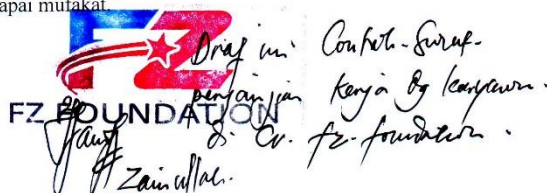 apai mufakat.
FZ
FZ FOUNDATION
Draf ini Contoh-Surat-
perjanjian kerja Dg karyawan.
di Cv. fz-foundation.
Zainullah.